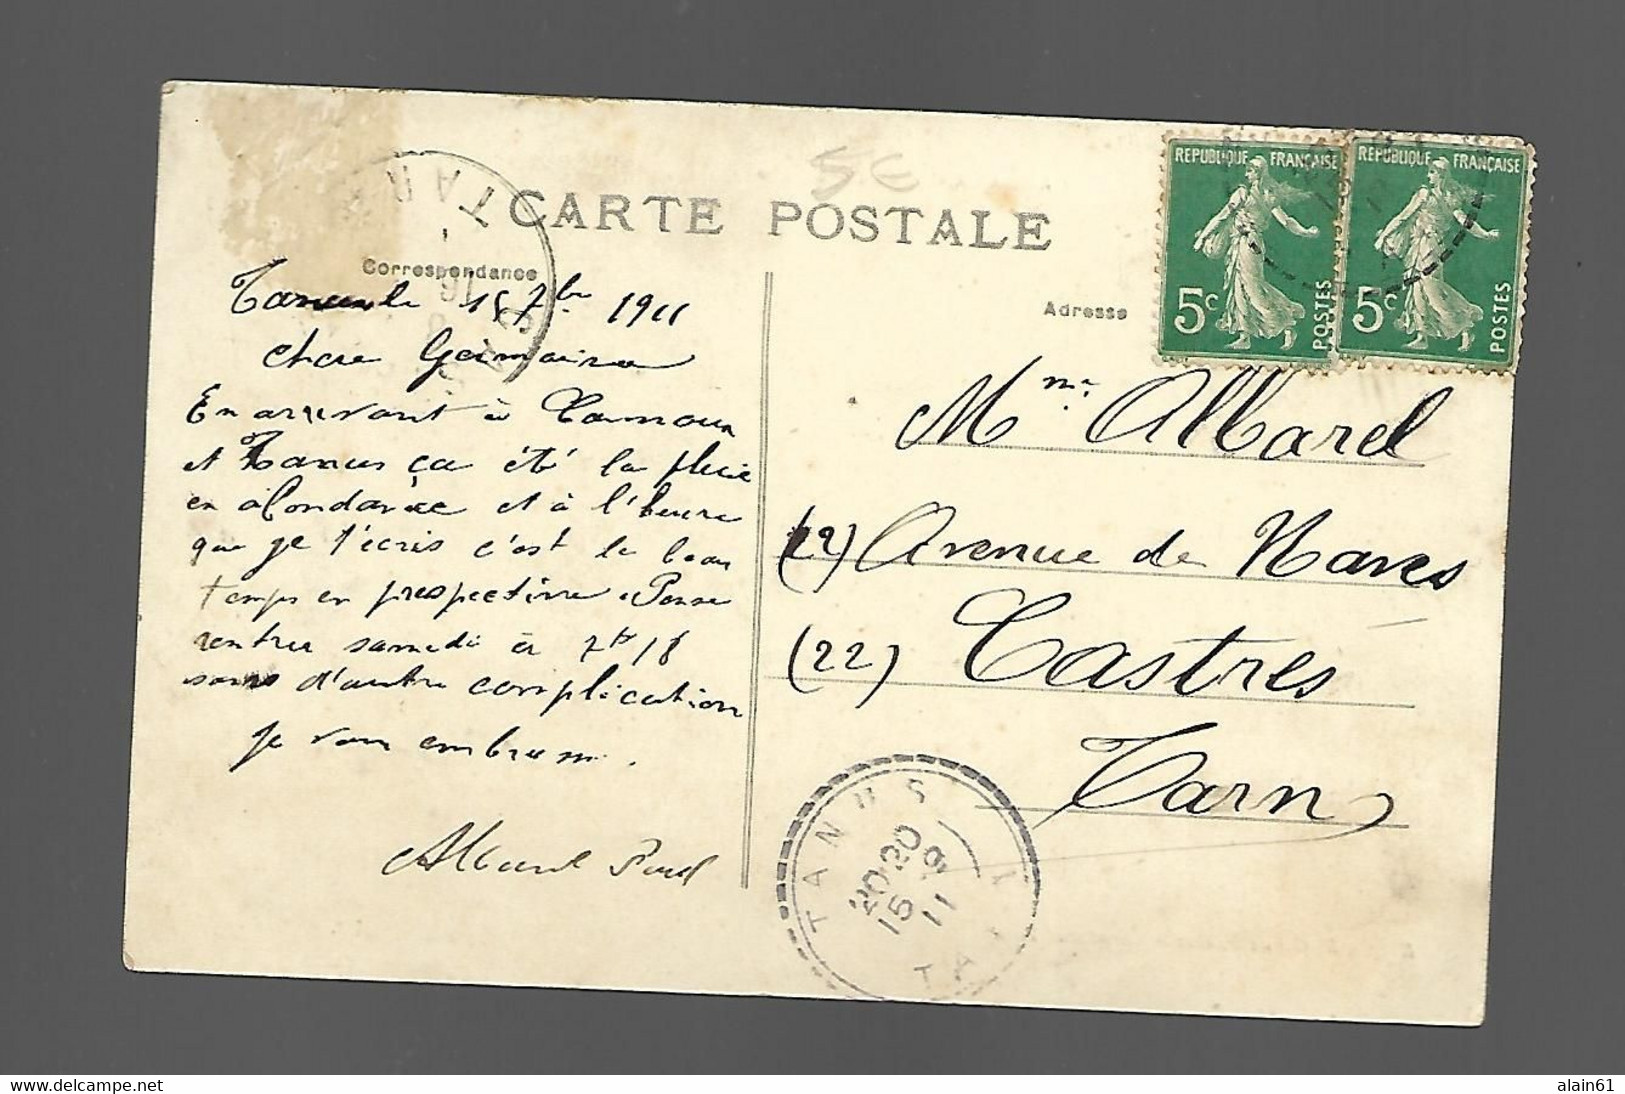 5 €
CARTE POSTALE
Correspondance
Adresse
REPUBLIQUE FRANÇAISE
5c
POSTES
REPUBLIQUE FRANÇAISE
5c
POSTES
TAR
Tanus le 15 7bre 1911
Chere Germaine
En arrivant à Carmaux
et Tanus ça été la pluie
en abondance et à l'heure
que je t'écris c'est le beau
temps en perspective. Pense
rentrer samedi à 7h 18
sans d'autre complication
je vous embrasse.
Albarel Paul
Mme Albarel
(22) Avenue de Naves
(22) Castres
Tarn
TANUS
20 20
15 9
11
TARN
alain61